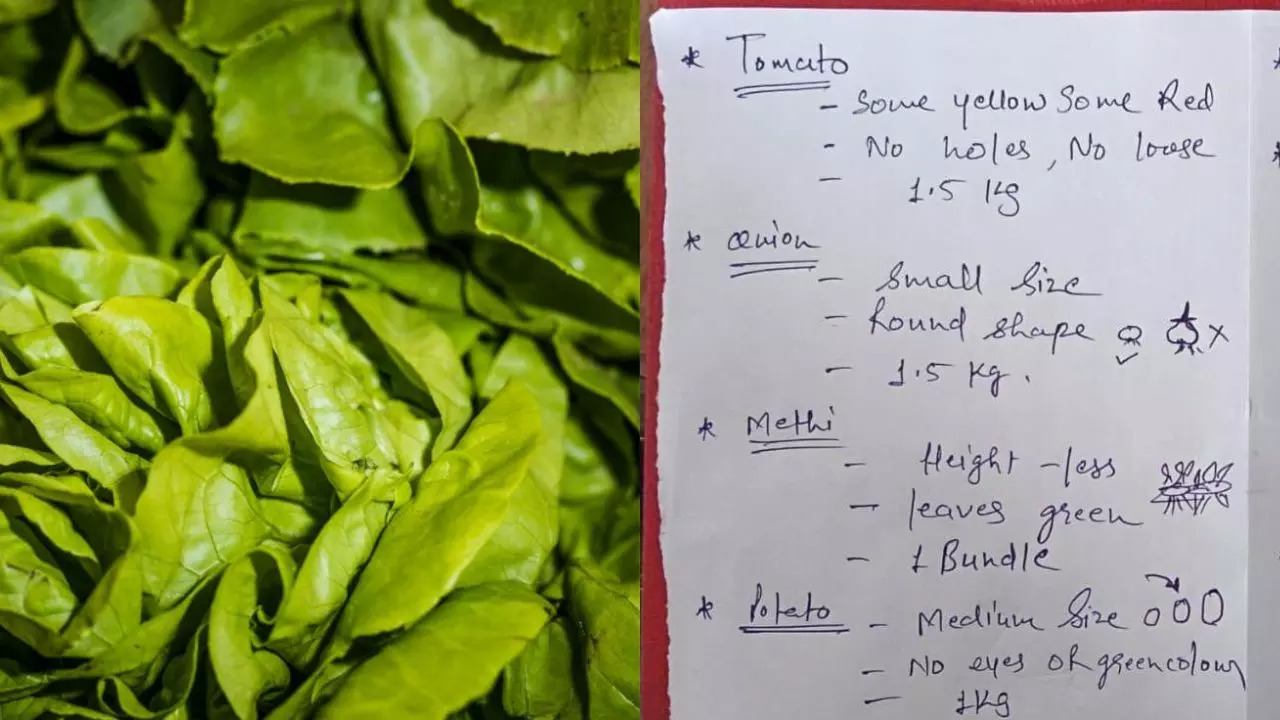 * Tomato
- Some yellow Some Red
- No holes, No loose
- 1.5 Kg
* Onion
- Small Size
- Round shape
- 1.5 Kg.
* Methi
- Height - less
- leaves green
- 1 Bundle
* Potato - Medium Size
- No eyes or green colour
- 1Kg